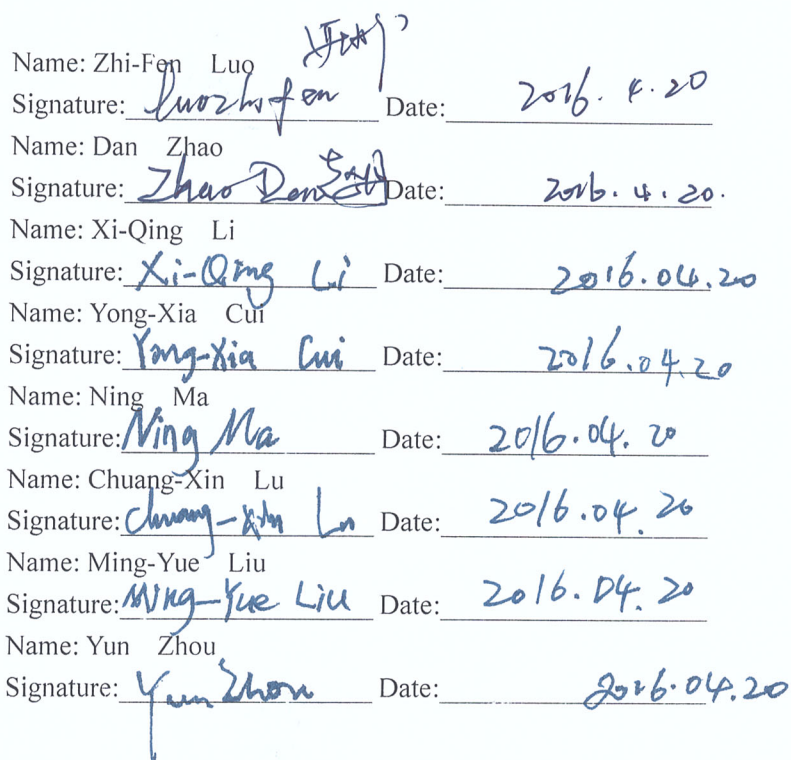 Name: Zhi-Fen Luo
Signature: Luozhifen Date: 2016.4.20
Name: Dan Zhao
Signature: Zhao Dan Date: 2016.4.20.
Name: Xi-Qing Li
Signature: Xi-Qing Li Date: 2016.04.20
Name: Yong-Xia Cui
Signature: Yong-Xia Cui Date: 2016.04.20
Name: Ning Ma
Signature: Ning Ma Date: 2016.04.20
Name: Chuang-Xin Lu
Signature: Chuang-Xin Lu Date: 2016.04.20
Name: Ming-Yue Liu
Signature: Ming-Yue Liu Date: 2016.04.20
Name: Yun Zhou
Signature: Yun Zhou Date: 2016.04.20